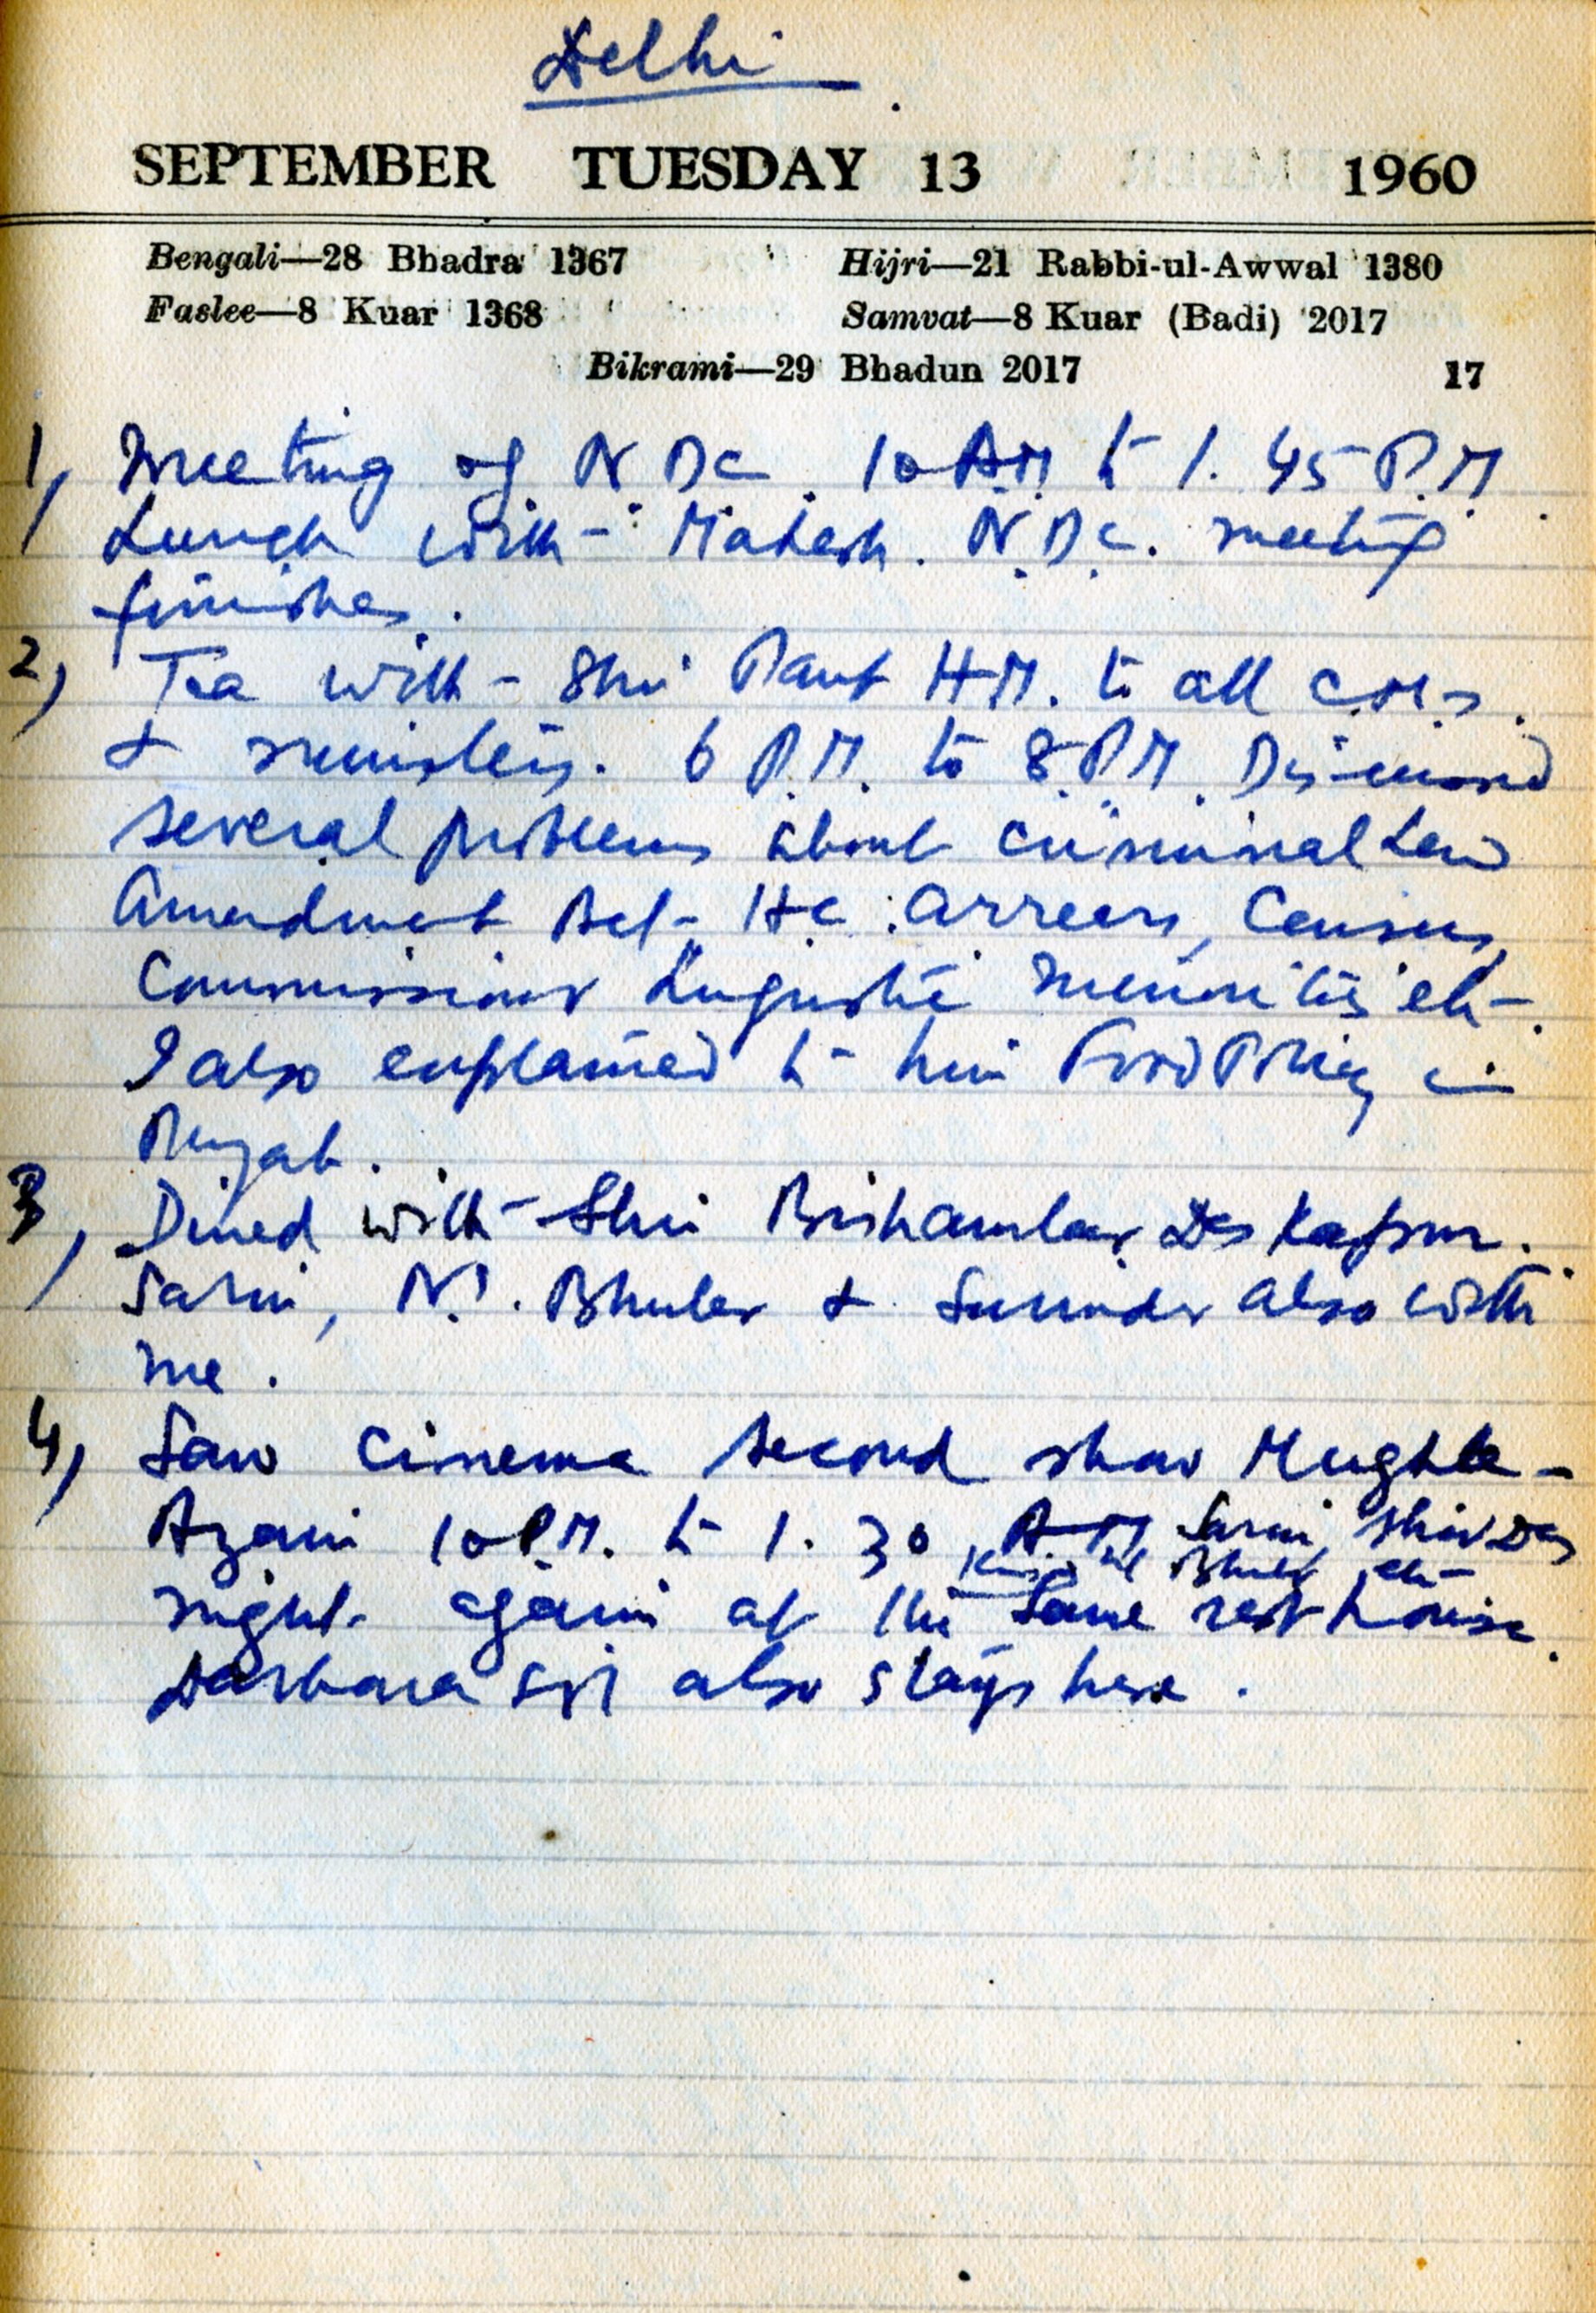 Delhi
SEPTEMBER TUESDAY 13 1960
Bengali—28 Bhadra 1367 Hijri—21 Rabbi-ul-Awwal 1380
Faslee—8 Kuar 1368 Samvat—8 Kuar (Badi) 2017
Bikrami—29 Bhadun 2017 17
1, Meeting of N.D.C. 10 A.M. to 1.45 P.M.
Lunch with Mahesh. N.D.C. meeting
finishes.
2, Tea with Shri Pant H.M. to all C.M.s.
& ministers. 6 P.M. to 8 P.M. Discussed
several problems about Criminal Law
Amendment Act, H.C. arrears, Census,
Commissioner Linguistic Minorities etc.
I also explained to him Food Policy in
Punjab.
3, Dined with Shri Bishambar Das Kapur.
Sarin, N.S. Bhuler & Surinder also with
me.
4, Saw cinema second show Mughle-
Azam 10 P.M. to 1.30 A.M. Sarin, Shiv Das
Bhuler etc
night again at the same rest house.
Darbara Singh also stays here.